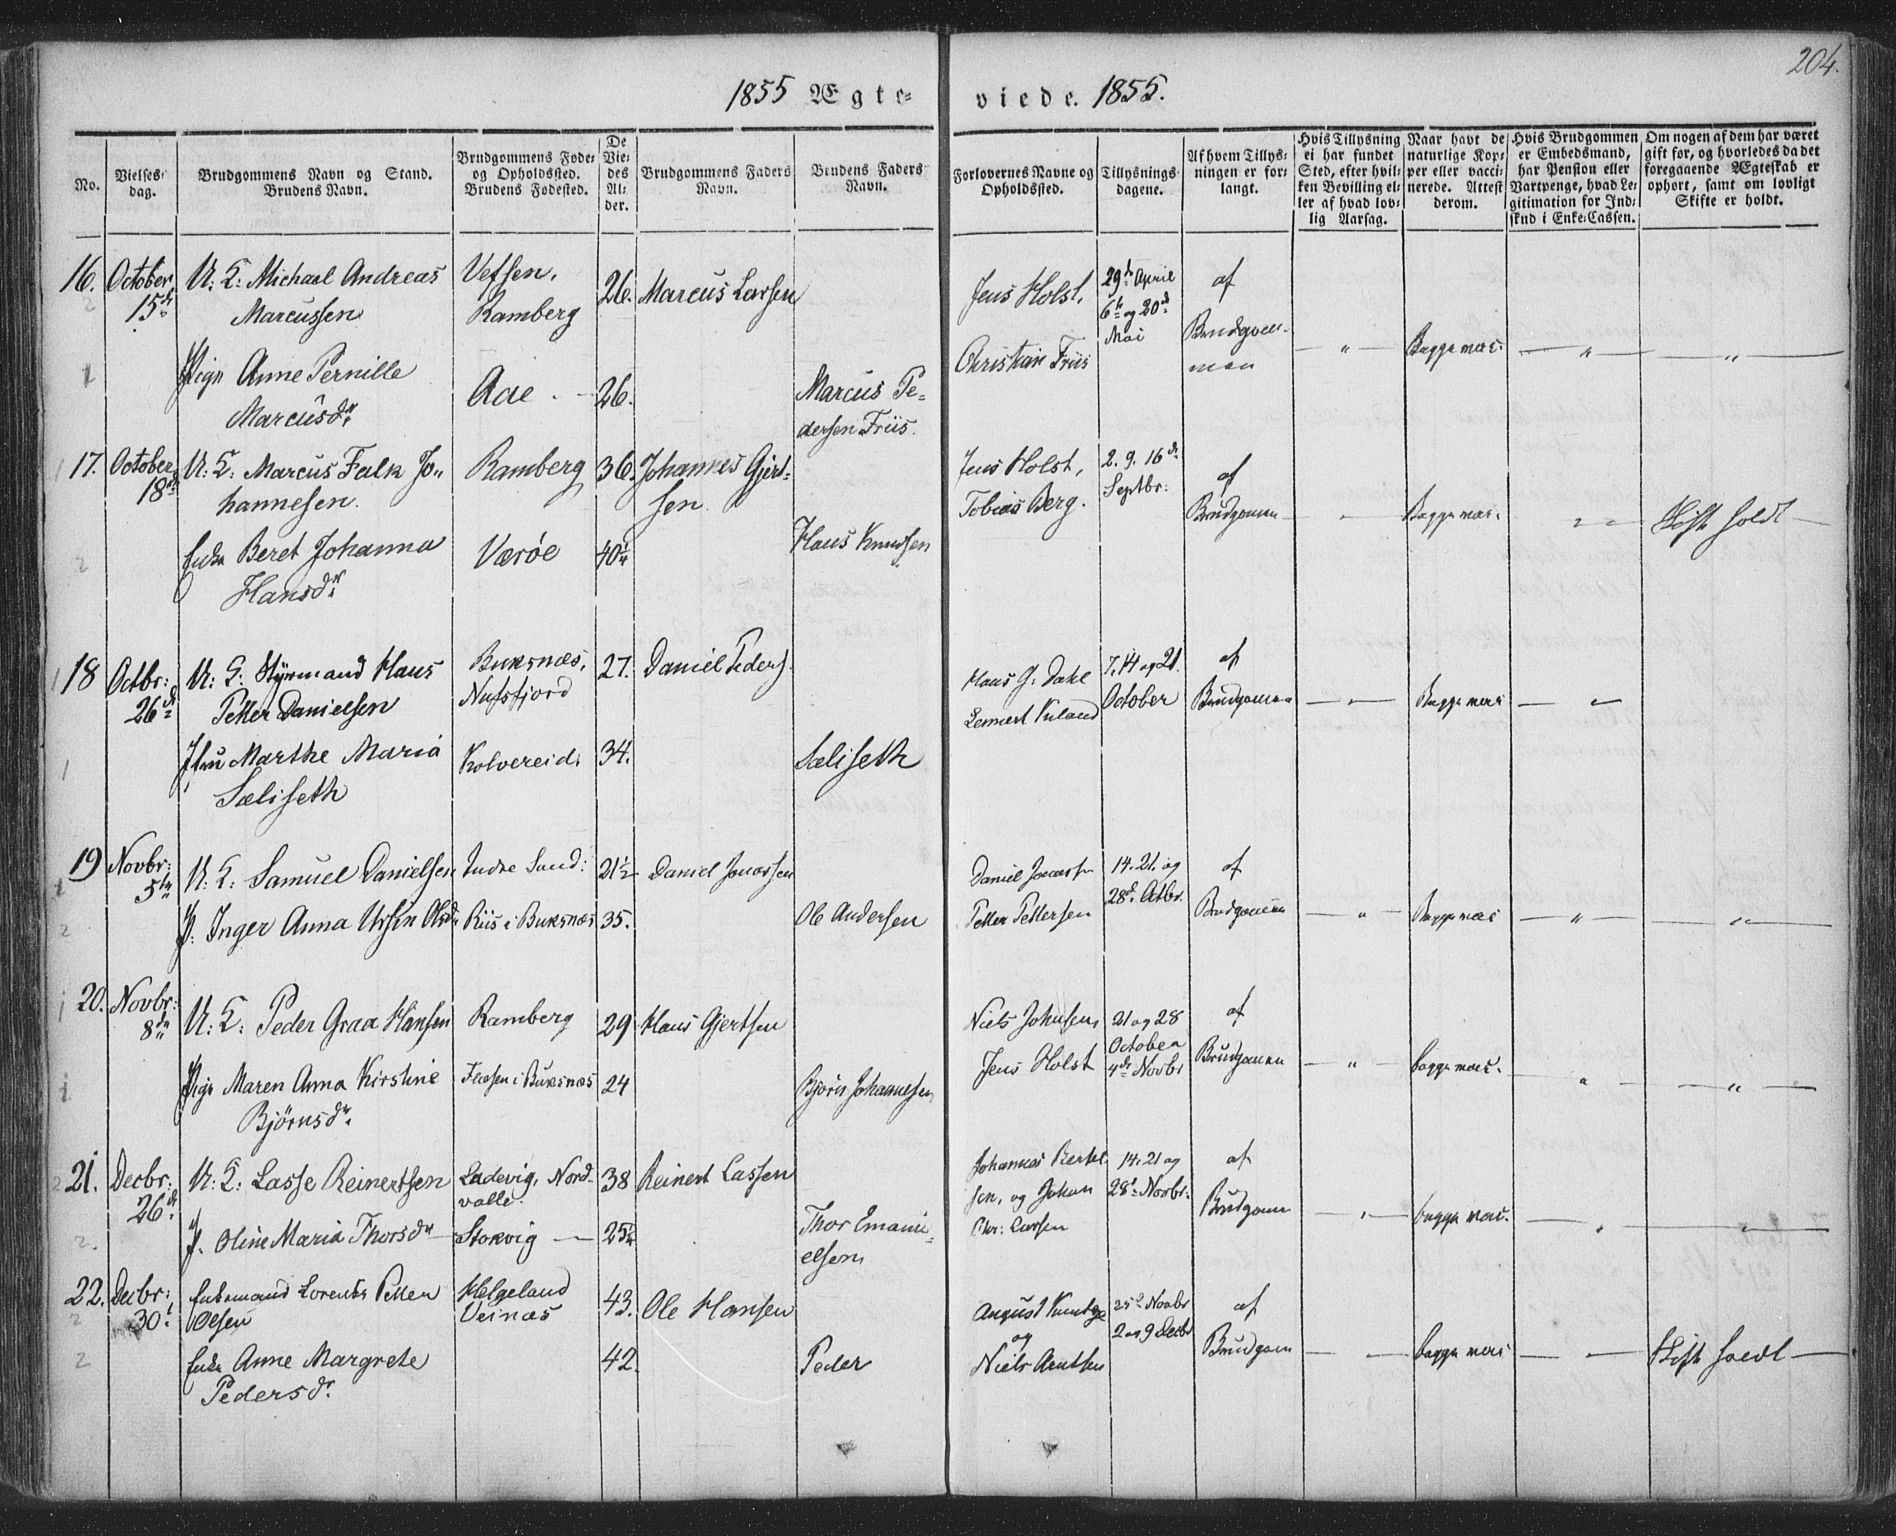 204.
1855 Ægte-
viede. 1855.
No.
Vielses-
dag.
Brudgommens Navn og Stand.
Brudens Navn.
Brudgommens Føde-
og Opholdssted.
Brudens Fødested.
De
Vie-
des
Al-
der.
Brudgommens Faders
Navn.
Brudens Faders
Navn.
Forlovernes Navne og
Opholdssted.
Tillysnings-
dagene.
Af hvem Tillys-
ningen er for-
langt.
Hvis Tillysning
ei har fundet
Sted, efter hvil-
ken Bevilling el-
ler af hvad lov-
lig Aarsag.
Naar havt de
naturlige Kop-
per eller vacci-
nerede. Attest
derom.
Hvis Brudgommen
er Embedsmand,
har Pension eller
Vartpenge, hvad Le-
gitimation for Ind-
skud i Enke-Cassen.
Om nogen af dem har været
gift før, og hvorledes da det
foregaaende Ægteskab er
ophørt, samt om lovligt
Skifte er holdt.
16. October
15de
U: K: Michael Andreas
Marcussen
Vefsen,
Ramberg
26. Marcus Larsen
Jens Holst,
29de April
6te og 20de
Mai
af
Brudgom-
men
Begge vac.
Pige Anne Pernille
Marcusdr
Aae
26.
Marcus Pe-
dersen Friis.
Christian Friis
17. October
18de
U: K: Marcus Falk Jo-
hannesen.
Ramberg
36. Johannes Gjert-
sen
Jens Holst,
Tobias Berg.
2. 9. 16de
Septbr:
af
Brudgommen
Begge vac.
Skifte holdt
Enke Beret Johanna
Hansdr
Værøe
40¼
Hans Knudsen
18 Octbr:
26de
U: K: Styrmand Hans
Petter Danielsen
Buksnæs,
Nufsfjord
27. Daniel Peders.
Hans G. Dahl
Lennert
7, 14 og 21.
October
af
Brudgommen
Begge vac
Jfru Marthe Maria
Sæliseth
Kolvereid.
34.
Sæliseth
19 Novbr:
5te
U: K: Samuel Danielsen
Indre Sand:
21½
Daniel Jonassen
Daniel Jonassen
14. 21. og
28de Octbr.
af
Brudgommen
Begge vac
P. Inger Anna Ursin Olsdr
Riis i Buksnæs
35.
Ole Andersen
Petter Pettersen
20. Novbr:
8de
U: K: Peder Graa Hansen
Ramberg
29 Hans Gjertsen
Niels Johnsen,
Jens Holst
21 og 28
October
4de Novbr
af
Brudgommen
begge vac.
Pige Maren Anna Kirstine
Bjørnsdr
i Buksnæs
24
Bjørn Johannesen
21. Decbr:
26de
U: K: Lasse Reinertsen
Ladevig, Nord-
valle.
38 Reinert Lassen
Johannes Bertel
sen, og Johan
Chr: Larsen
14. 21 og
28de Novbr:
af
Brudgom
begge vac.
P. Oline Maria Thorsdr
Storvig
25¼
Thor Emanu-
elsen
22. Decbr:
30te
Enkemand Lorents Petter
Olsen
Helgeland
Veinæs
43. Ole Hansen
August
og
Niels Arntsen
25de Novbr
2 og 9 Decbr
af
Brudgom
begge vac
Skifte holdt
Enke Anne Margrete
Pedersdr.
42.
Peder